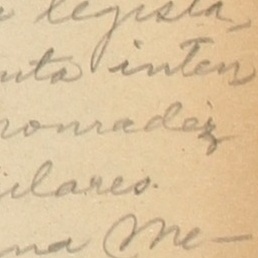 legisla-
nta inten
onradez
ulares.
na Me-